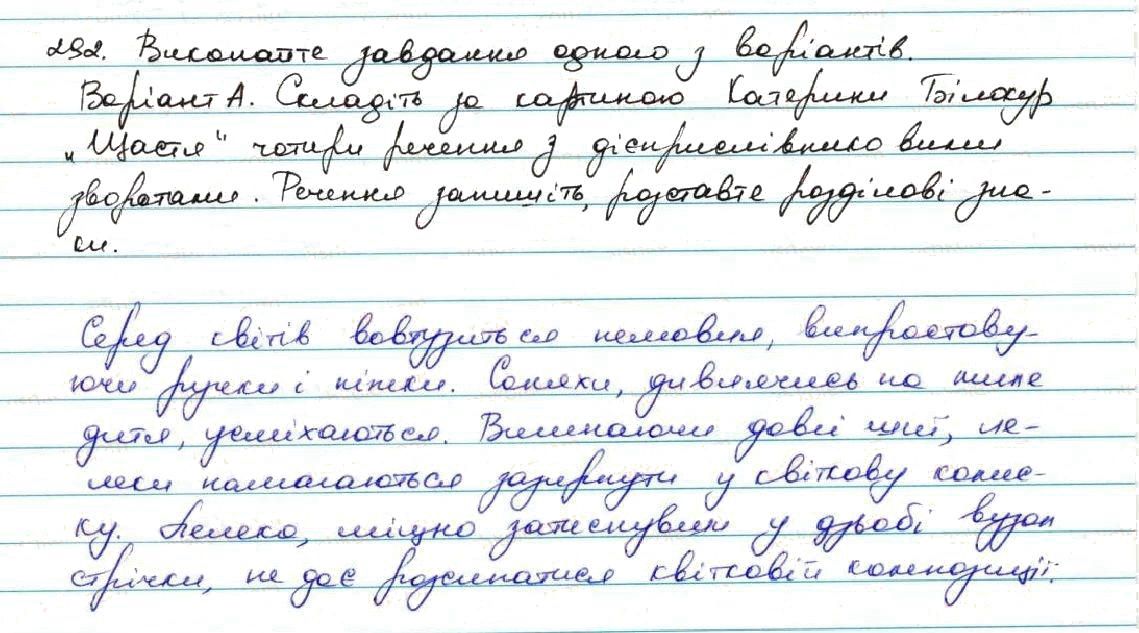 292. Виконайте завдання одного з варіантів.
Варіант А. Складіть за картиною Катерини Білокур
„Щастя" чотири речення з дієприслівниковими
зворотами. Речення запишіть, розставте розділові зна-
ки.
Серед квітів вовтузиться немовля, випростову-
ючи ручки і ніжки. Соняхи, дивлячись на миле
дитя, усміхаються. Вигинаючи довгі шиї, ле-
леки намагаються зазирнути у квіткову колис-
ку. Лелека, міцно затиснувши у дзьобі вузол
стрічки, не дає розсипатися квітковій композиції.